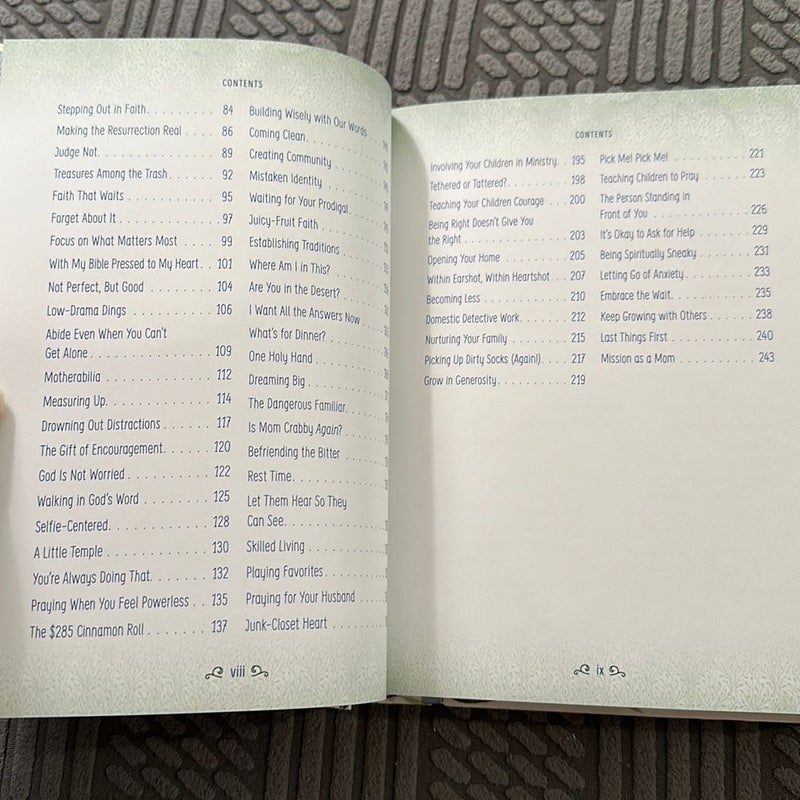 CONTENTS
Stepping Out in Faith. . . . . . . . . 84
Making the Resurrection Real . . . . 86
Judge Not. . . . . . . . . . . . . . 89
Treasures Among the Trash. . . . . . 92
Faith That Waits . . . . . . . . . . 95
Forget About It . . . . . . . . . . . 97
Focus on What Matters Most . . . . 99
With My Bible Pressed to My Heart. . 101
Not Perfect, But Good . . . . . . . 104
Low-Drama Dings . . . . . . . . . 106
Abide Even When You Can't
Get Alone . . . . . . . . . . . . . 109
Motherabilia . . . . . . . . . . . 112
Measuring Up. . . . . . . . . . . 114
Drowning Out Distractions . . . . . 117
The Gift of Encouragement. . . . . . 120
God Is Not Worried . . . . . . . . 122
Walking in God's Word . . . . . . . 125
Selfie-Centered. . . . . . . . . . . 128
A Little Temple . . . . . . . . . . 130
You're Always Doing That. . . . . . 132
Praying When You Feel Powerless . . 135
The $285 Cinnamon Roll . . . . . . 137
Building Wisely with Our Words
Coming Clean. . . . . . . . . .
Creating Community . . . . . .
Mistaken Identity . . . . . . .
Waiting for Your Prodigal. . . .
Juicy-Fruit Faith . . . . . . .
Establishing Traditions . . . . .
Where Am I in This? . . . . . .
Are You in the Desert? . . . . .
I Want All the Answers Now . .
What's for Dinner? . . . . . . .
One Holy Hand . . . . . . . . .
Dreaming Big . . . . . . . . .
The Dangerous Familiar. . . . .
Is Mom Crabby Again? . . . . .
Befriending the Bitter . . . . .
Rest Time. . . . . . . . . . .
Let Them Hear So They
Can See. . . . . . . . . . . .
Skilled Living . . . . . . . . .
Playing Favorites. . . . . . . .
Praying for Your Husband . . . .
Junk-Closet Heart . . . . . . .
viii
CONTENTS
Involving Your Children in Ministry. . 195
Tethered or Tattered?. . . . . . . . 198
Teaching Your Children Courage . . . 200
Being Right Doesn't Give You
the Right . . . . . . . . . . . . . 203
Opening Your Home . . . . . . . . 205
Within Earshot, Within Heartshot . . 207
Becoming Less . . . . . . . . . . 210
Domestic Detective Work. . . . . . . 212
Nurturing Your Family . . . . . . . 215
Picking Up Dirty Socks (Again!). . . . 217
Grow in Generosity. . . . . . . . . 219
Pick Me! Pick Me! . . . . . . . . . 221
Teaching Children to Pray . . . . . 223
The Person Standing in
Front of You . . . . . . . . . . . 226
It's Okay to Ask for Help . . . . . . 229
Being Spiritually Sneaky . . . . . . 231
Letting Go of Anxiety. . . . . . . . 233
Embrace the Wait. . . . . . . . . . 235
Keep Growing with Others . . . . . 238
Last Things First . . . . . . . . . 240
Mission as a Mom . . . . . . . . . 243
ix